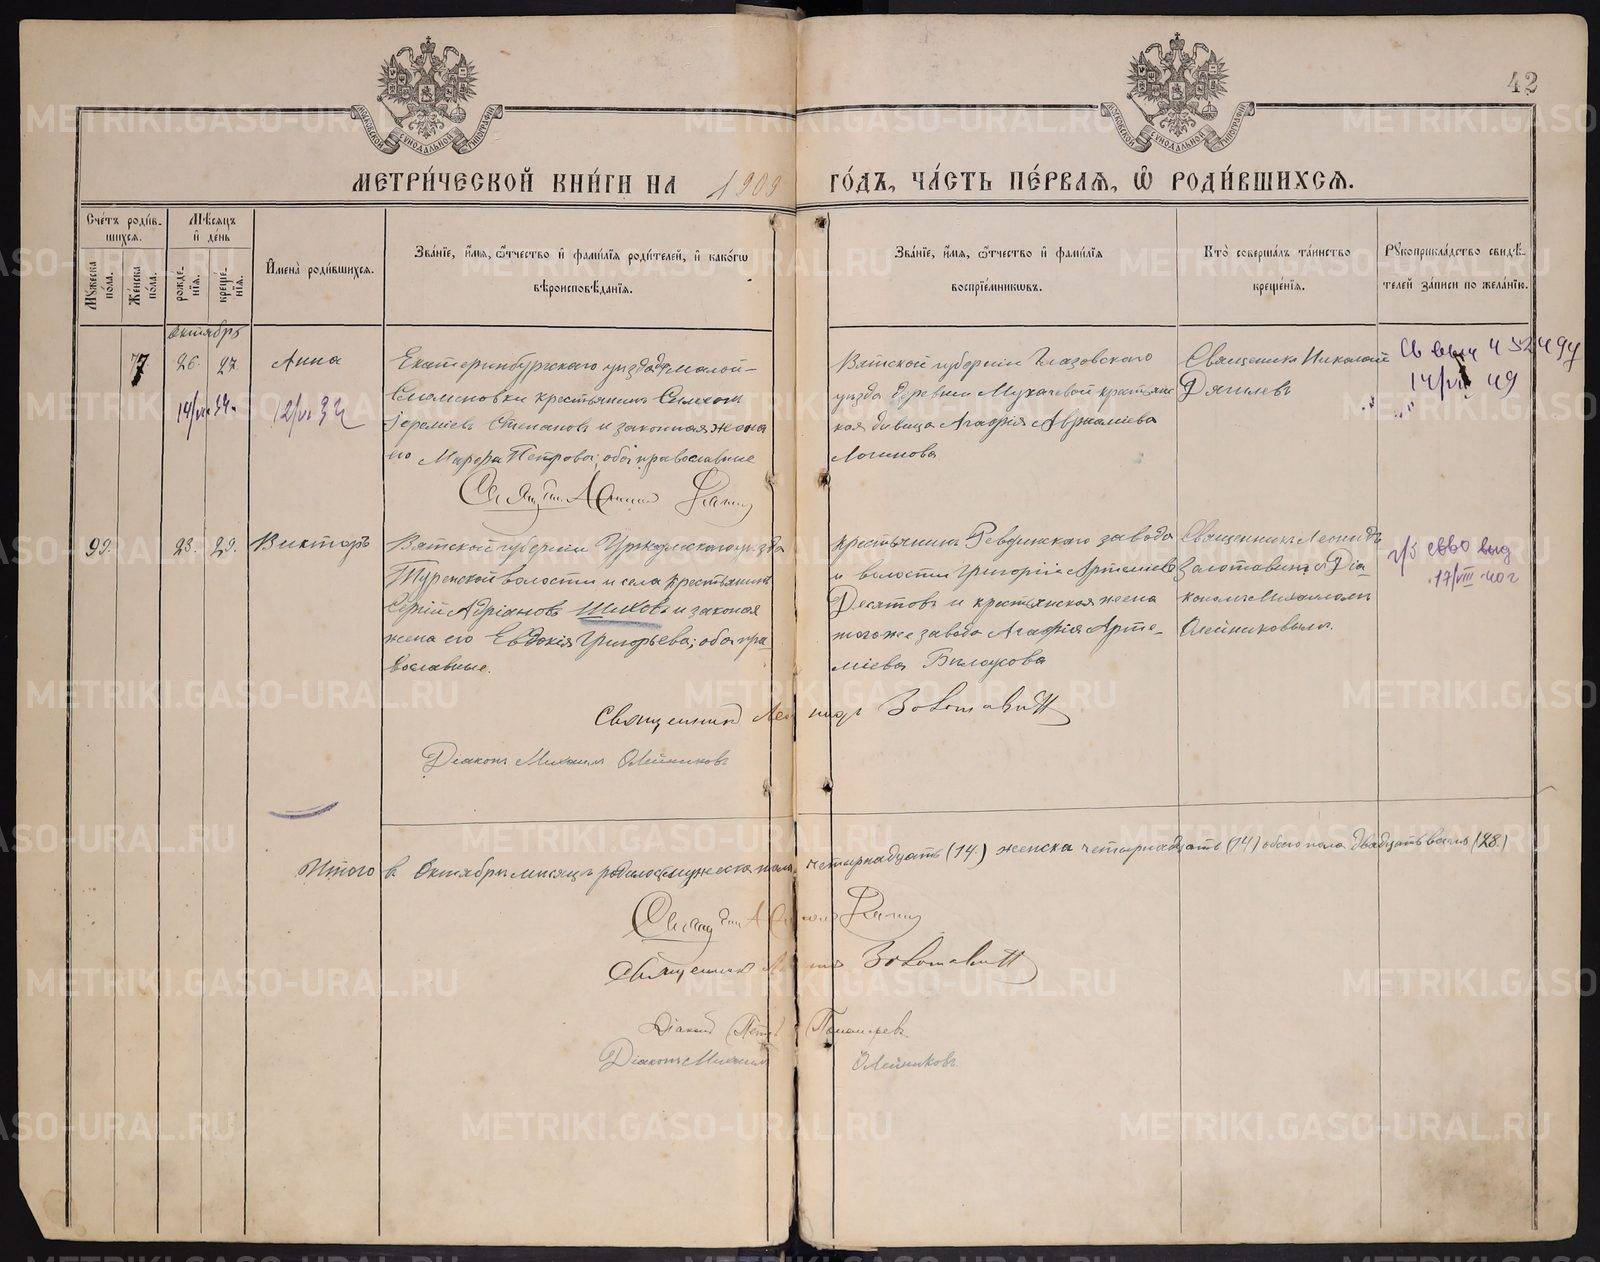 42
МОСКОВСКОЙ СѴНОДАЛЬНОЙ ТИПОГРАФІИ
МОСКОВСКОЙ СѴНОДАЛЬНОЙ ТИПОГРАФІИ
МЕТРИ́ЧЕСКОЙ КНИ́ГИ НА 1909 ГО́ДЪ, ЧА́СТЬ ПЕ́РВАѦ, Ѡ҆ РОДИ́ВШИХСѦ.
Сче́тъ роди́в-
шихсѧ.
Мѣ́сѧцъ
и҆ де́нь
Мꙋ́жеска по́ла.
Же́нска по́ла.
рожде́-
нїѧ.
креще́-
нїѧ.
И҆мена̀ роди́вшихсѧ.
Зва́нїе, и҆́мѧ, ѻ҆́тчество и҆ фами́лїѧ роди́телей, и҆ како́гѡ
вѣроисповѣ́данїѧ.
Зва́нїе, и҆́мѧ, ѻ҆́тчество и҆ фами́лїѧ
воспрїе́мникѡвъ.
Кто̀ соверша́лъ та́инство
креще́нїѧ.
Рꙋкоприкла́дство свидѣ́-
телей за́писи по жела́нїю.
Октябрь
26. 27. Анна
Екатеринбургскаго уѣзда д. Малой-
крестьянинъ
Степановъ и законная жена
его Марѳа Петрова; оба православные
Вятской губерніи Глазовскаго
уѣзда деревни Мухачевой крестьянс
кая дѣвица Агафія Авраміева
Логинова
Священникъ Николай
Дягилевъ
14/VI 49
12/VI 32
99. 23. 29. Викторъ
Вятской губерніи Уржумскаго уѣзда
Турекской волости и села крестьянинъ
Сергій Адріановъ Шиховъ и законая
жена его Евдокія Григорьева; оба пра
вославные.
крестьянинъ Ревдинскаго завода
и волости Григорій Артеміевъ
Десятовъ и крестьянская жена
того же завода Агафія Арте-
міева Бѣлоусова
Священникъ Леонидъ
Золотавинъ с Діа-
кономъ Михаиломъ
Олейниковымъ.
выд
17/VIII 40г
Священникъ Леонидъ Золотавинъ
Діаконъ Михаилъ Олейниковъ
Итого в Октябрѣ мѣсяцѣ родилось мужеска пола четырнадцать (14.) женска четырнадцать (14) обоего пола двадцать восемь (28.)
Священникъ Леонидъ Золотавинъ
Діаконъ Петръ Пономаревъ
Діаконъ Михаилъ Олейниковъ
METRIKI.GASO-URAL.RU